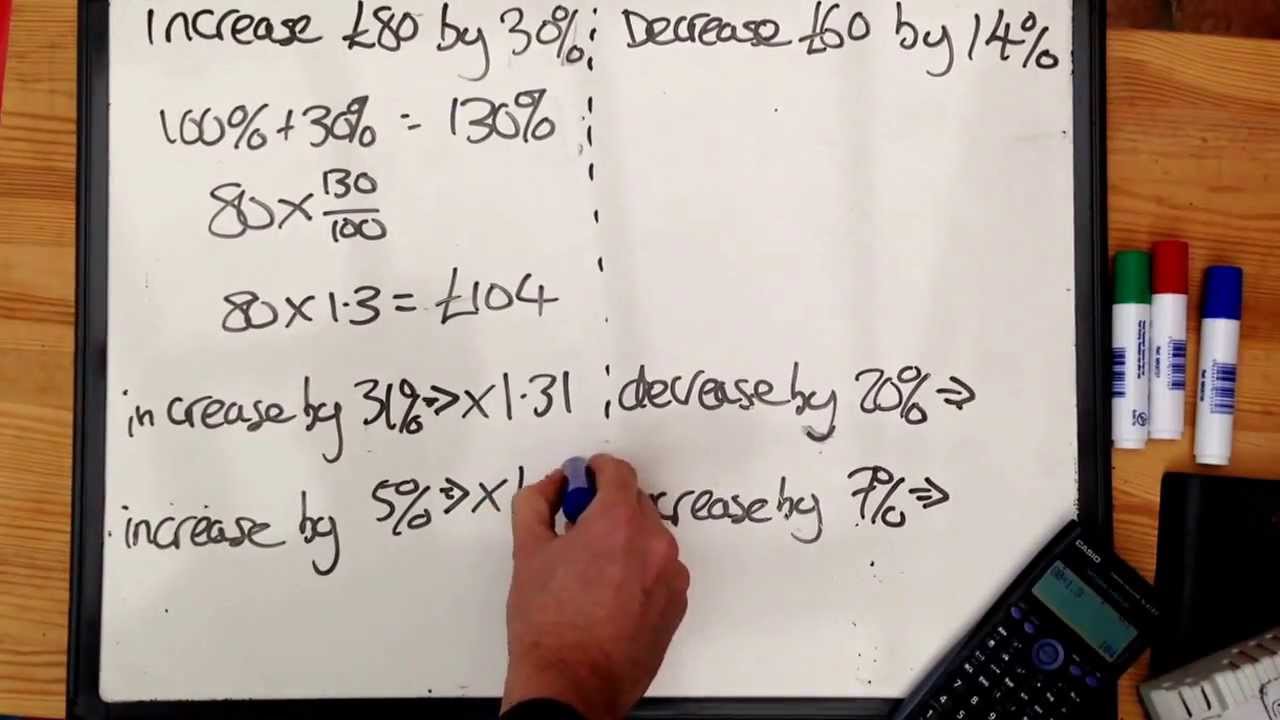 increase £80 by 30%
Decrease £60 by 14%
100%+30% = 130%
80 × 130/100
80 × 1·3 = £104
increase by 31% ⇒ × 1·31
decrease by 20% ⇒
increase by 5% ⇒ × 1
crease by 7% ⇒
CASIO